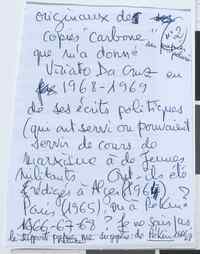 originaux des
copies "carbone" (n°2)
que m'a donné sur papier pelure
Viriato Da Cruz en
1968-1969
de ses écrits politiques
(qui ont servi ou pouvaient
servir de cours de
marxisme à de jeunes
militants. Ont-ils été
rédigés à Alger (1964) ?
Paris (1965) ou à Pékin
1966-67-68 ? Je ne sais pas
le support papier me suggère de Pékin